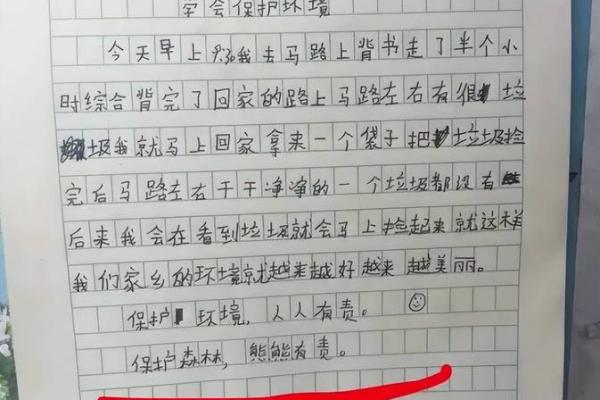 学会保护环境
今天早上9:30我去马路上背书走了半个小
时综合背完了回家的路上马路左右有很垃
圾我就马上回家拿来一个袋子把垃圾捡
完后马路左右干干净净的一个垃圾都没有
后来我会在看到垃圾就会马上捡起来就这样
我们家乡的环境就越来越好越来越美丽。
保护环境,人人有责。
保护森林,熊熊有责。